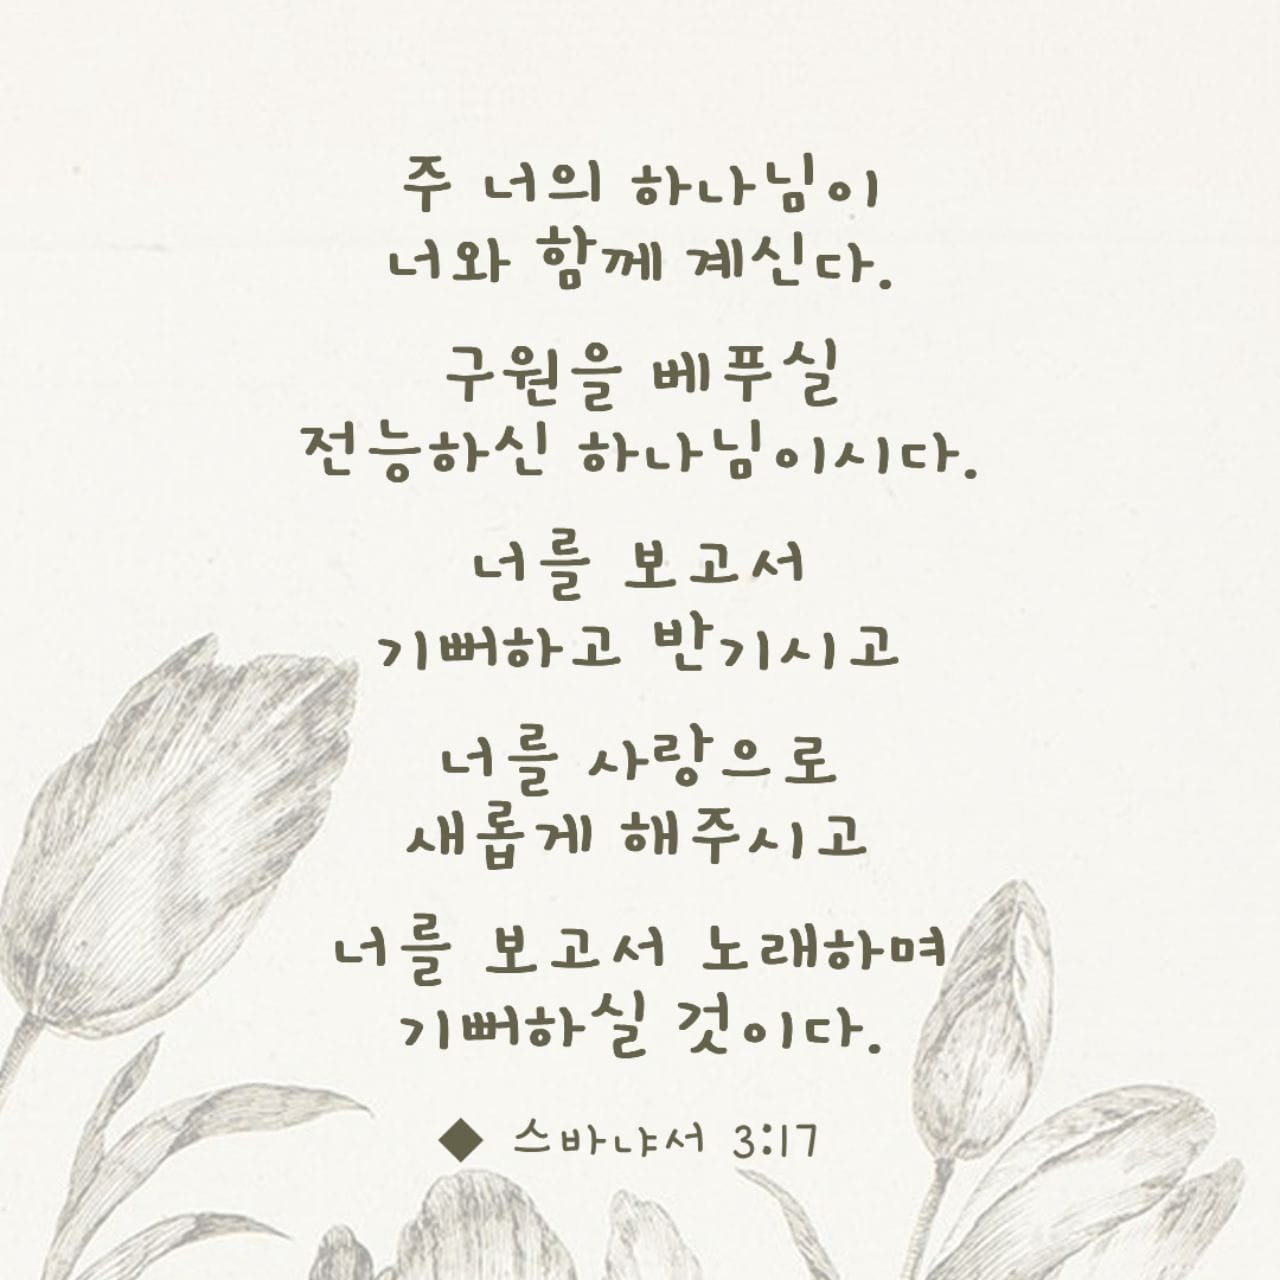 주 너의 하나님이
너와 함께 계신다.
구원을 베푸실
전능하신 하나님이시다.
너를 보고서
기뻐하고 반기시고
너를 사랑으로
새롭게 해주시고
너를 보고서 노래하며
기뻐하실 것이다.
◆ 스바냐서 3:17